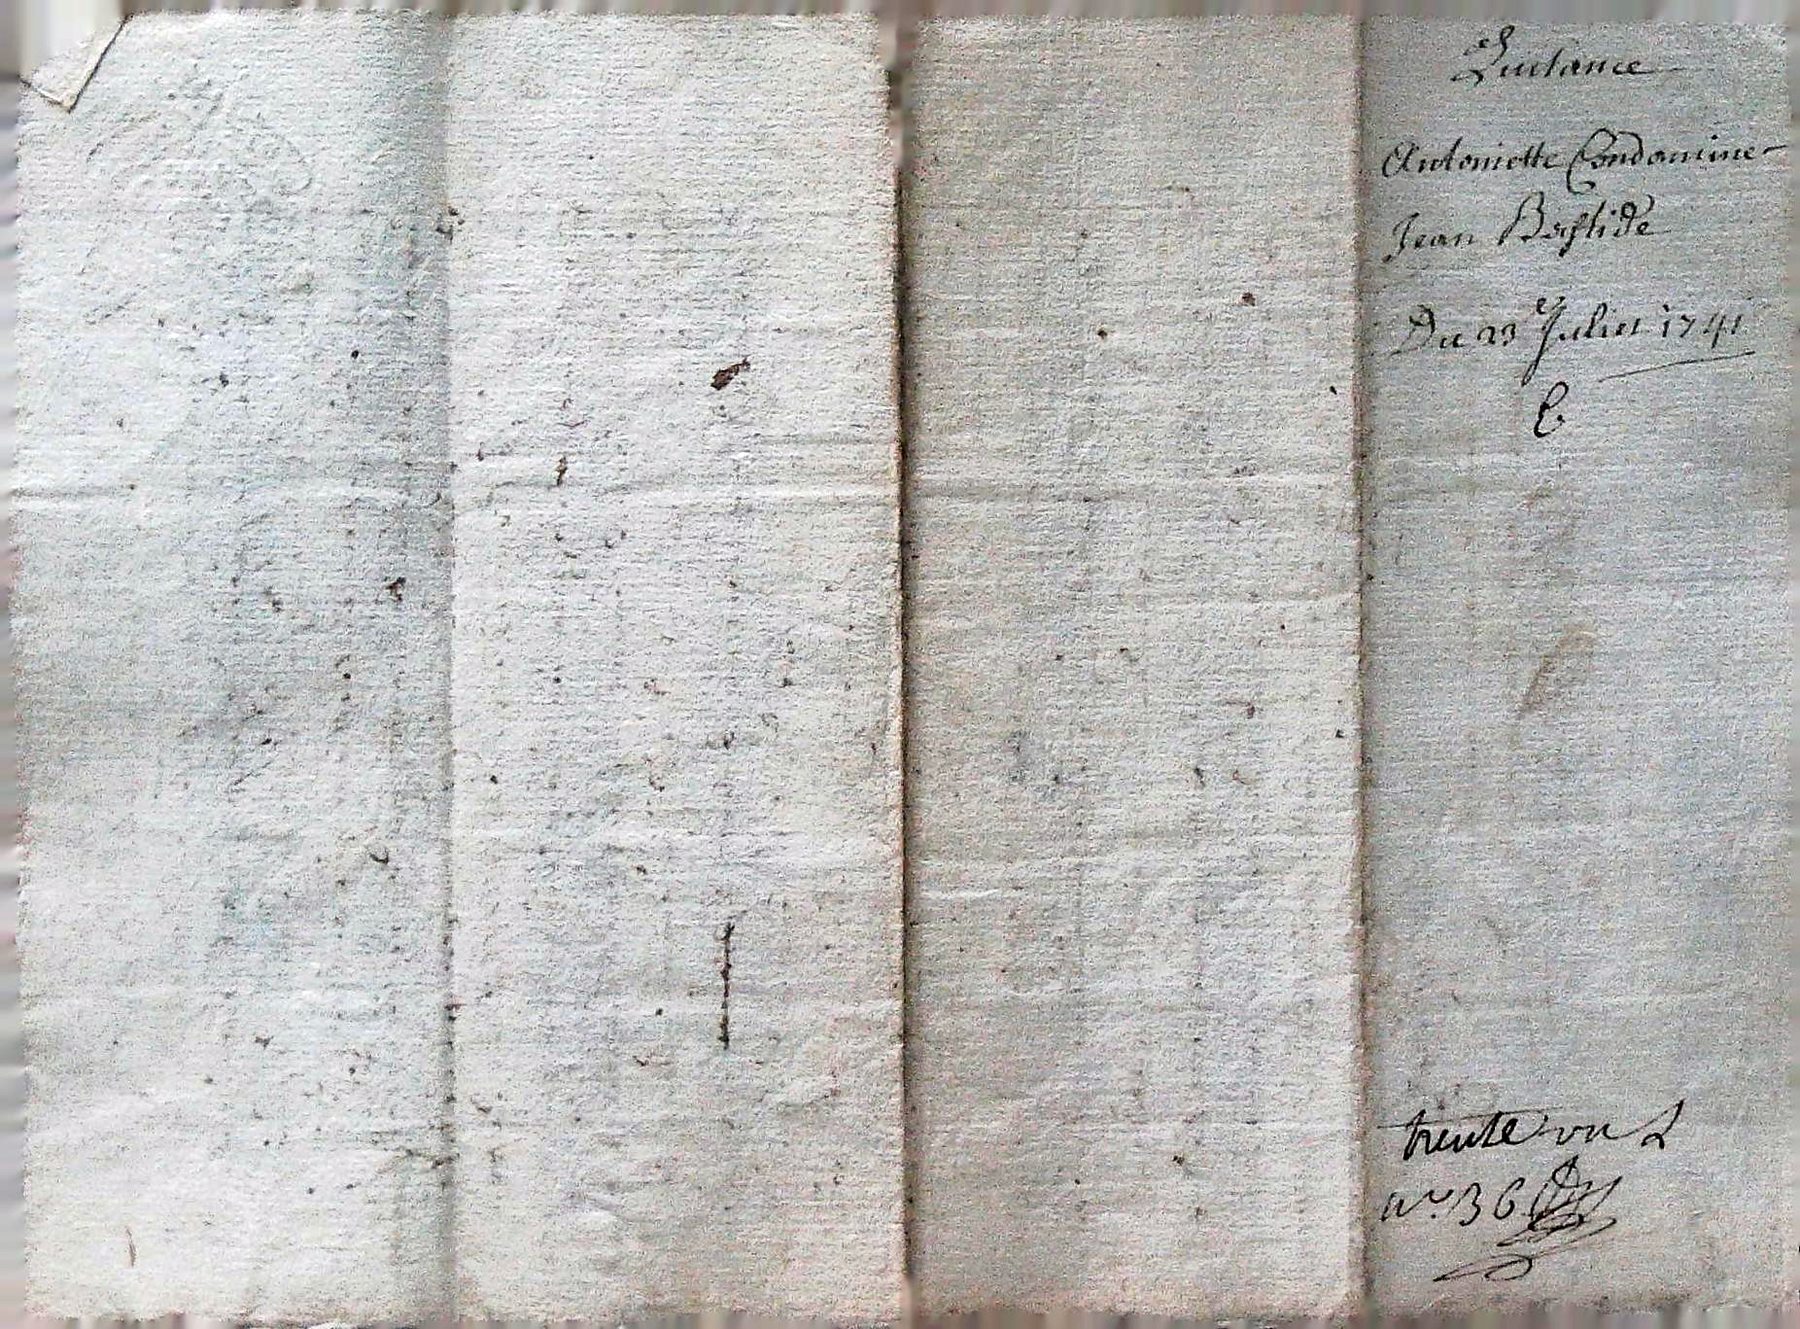 Quitance
Antoniette Condamine
Jean Bastide
Du 23 Juliet 1741
C.
trente un
n.o 36